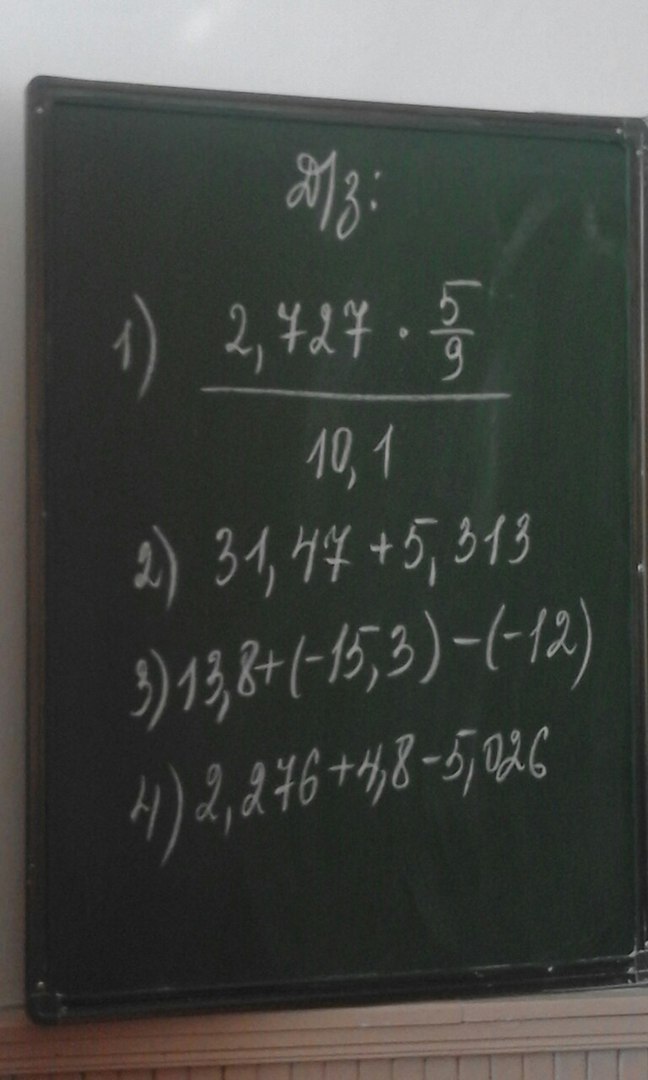 Д/з:
1) 2,727 · 5/9
10,1
2) 31,47 + 5,313
3) 13,8 + (-15,3) - (-12)
4) 2,276 + 4,8 - 5,026